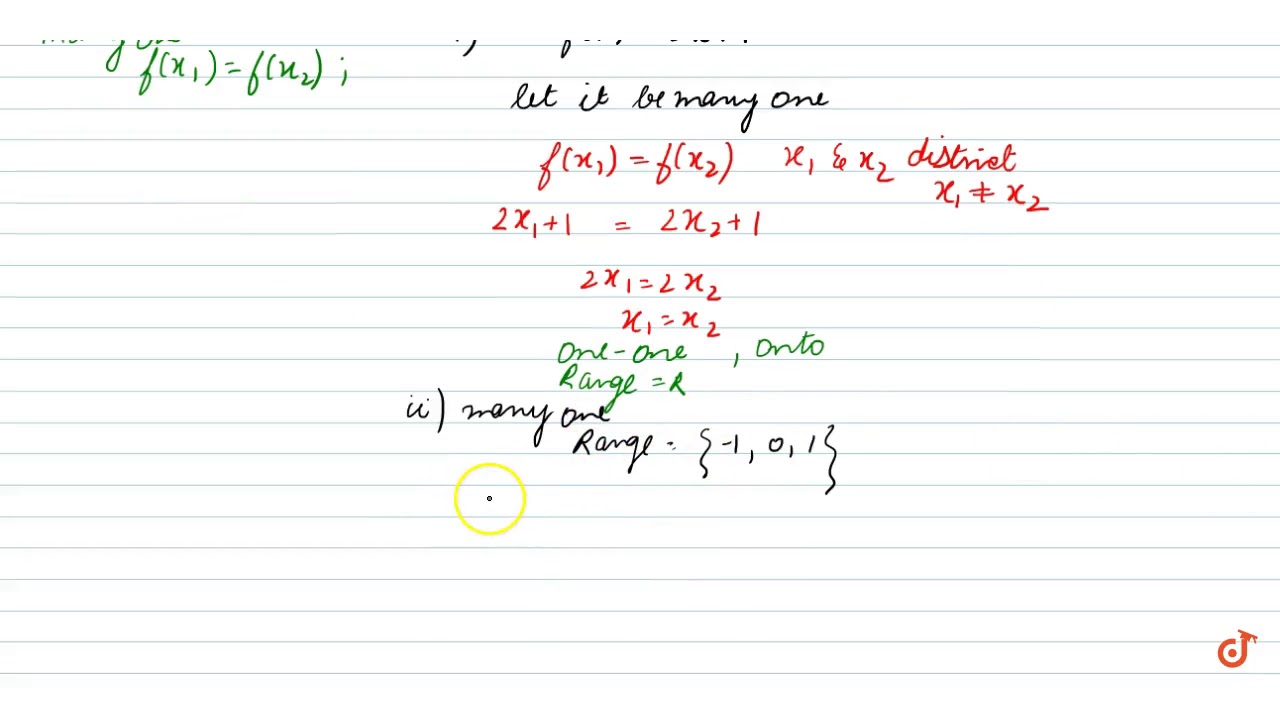 f(x₁) = f(x₂) ;
let it be many one
f(x₁) = f(x₂) x₁ & x₂ district
x₁ ≠ x₂
2x₁+1 = 2x₂+1
2x₁ = 2x₂
x₁ = x₂
one-one , onto
Range = R
ii) many one
Range = {-1, 0, 1}